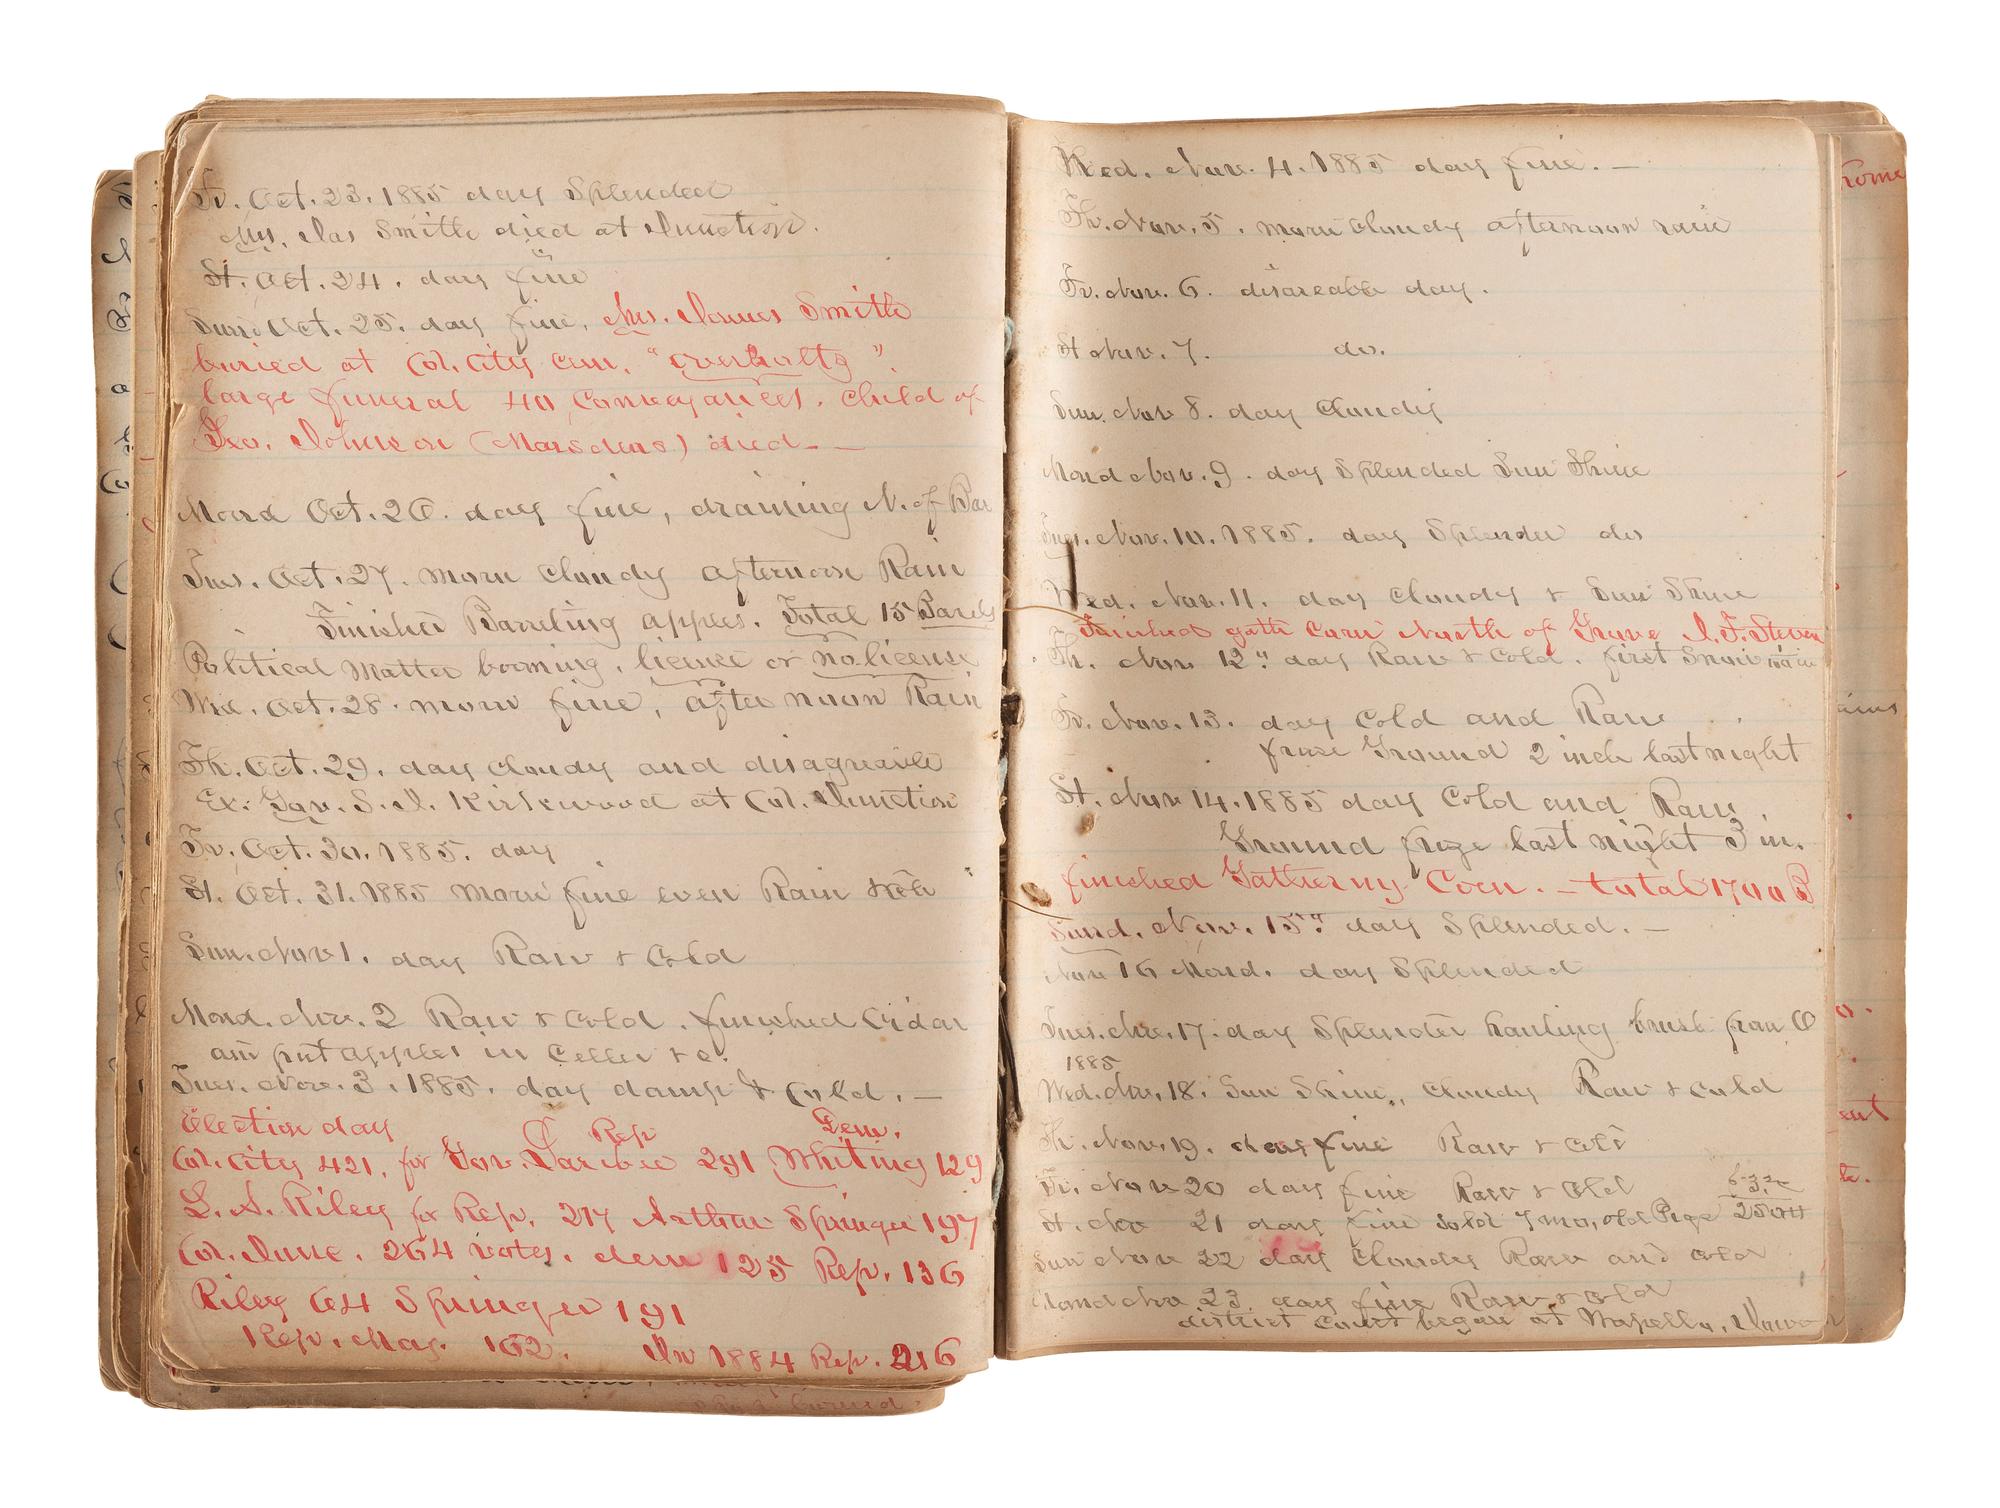 Fr. Oct. 23. 1885 day Splended
Mrs. Jas Smith died at Junction.
St. Oct. 24. day fine
Sun. Oct. 25. day fine, Mrs. James Smith
buried at Col. City Cem. "overholts"
large funeral 40 Conveyances. Child of
Geo. Johnson (Marsdens) died —
Mond Oct. 26. day fine, draining N. of Bar
Tues. Oct. 27. morn Cloudy afternoon Rain
Finished Barreling apples. Total 15 Barels
Political Matter booming. licence or no license
Wed. Oct. 28. morn fine, after noon Rain
Th. Oct. 29. day cloudy and disagreable
Ex. Gov. S. J. Kirkwood at Col. Junction
Fr. Oct. 30. 1885. day
St. Oct. 31. 1885 Morn fine even Rain
Sun. Nov 1. day Raw & Cold
Mond. Nov. 2 Raw & Cold. finished Cidar
and put apples in Celler & c.
Tues. Nov. 3. 1885. day damp & Cold. —
Election day Rep Dem.
Col. City 421. for Gov. Larabee 291 Whiting 129
L. A. Riley for Rep. 217 Arthur Springer 197
Col. Junc. 264 votes. dem 125 Rep. 136
Riley 64 Springer 191
Rep. Maj. 162. In 1884 Rep. 216
Wed. Nov. 4. 1885 day fine. —
Th. Nov. 5. morn Cloudy afternoon rain
Fr. Nov. 6. disareable day.
St Nov. 7. do.
Sun. Nov 8. day Cloudy
Mond Nov. 9. day Splended Sun Shine
Tues. Nov. 10. 1885. day Splender do
Wed. Nov. 11. day Cloudy & Sun Shine
Finished gath Corn North of Grove J. F. Steven
Th. Nov 12" day Raw & Cold. first Snow
Fr. Nov. 13. day Cold and Raw
froze Ground 2 inch last night
St. Nov 14. 1885 day Cold and Raw
Ground froze last night 3 in.
finished Gathering Corn. — total 1700 B
Sund. Nov. 15" day Splended. —
Nov 16 Mond. day Splended
Tues. Nov. 17. day Splender hauling brush from O
1885
Wed. Nov. 18. Sun Shine, Cloudy Raw & Cold
Th. Nov. 19. day fine Raw & Cold
Fr. Nov 20 day fine Raw & Cold
St. Nov 21 day fine sold 7 mo, old Pigs
Sun Nov 22 day Cloudy Raw and Cold
Mond Nov 23. day fine Raw & Cold
district Court began at Wapello, Iowa